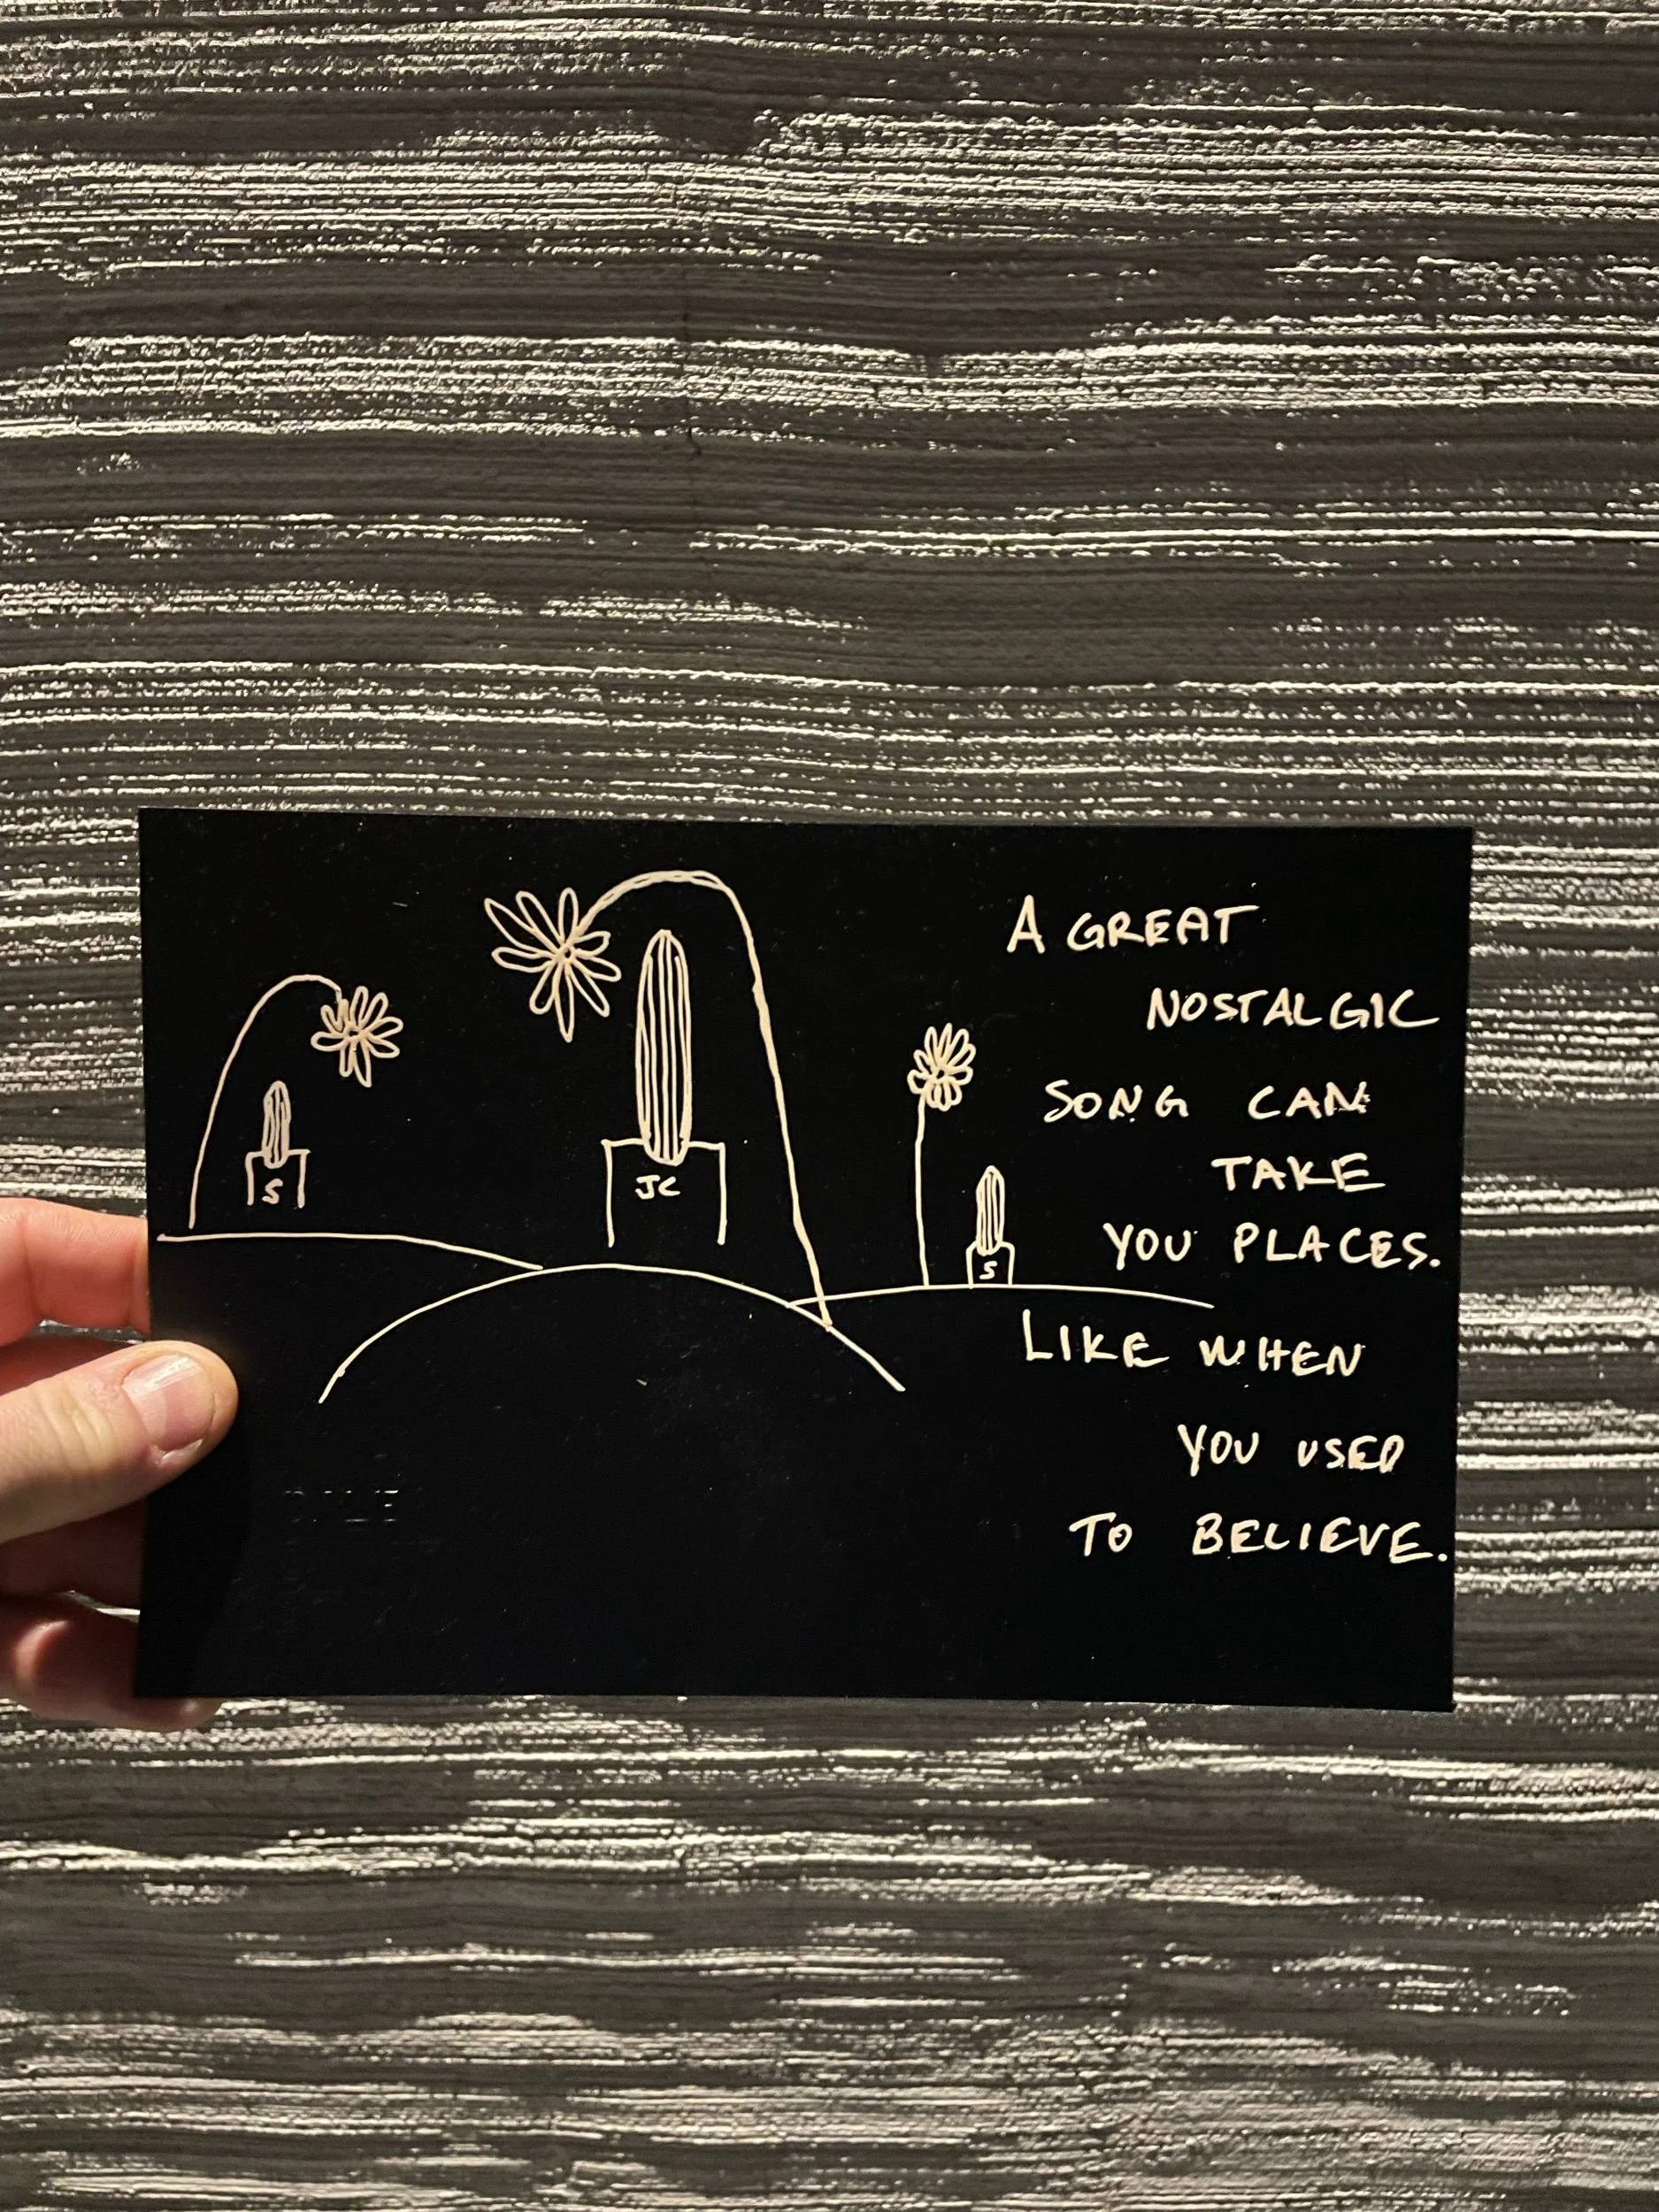 S
JC
S
A GREAT
NOSTALGIC
SONG CAN
TAKE
YOU PLACES.
LIKE WHEN
YOU USED
TO BELIEVE.